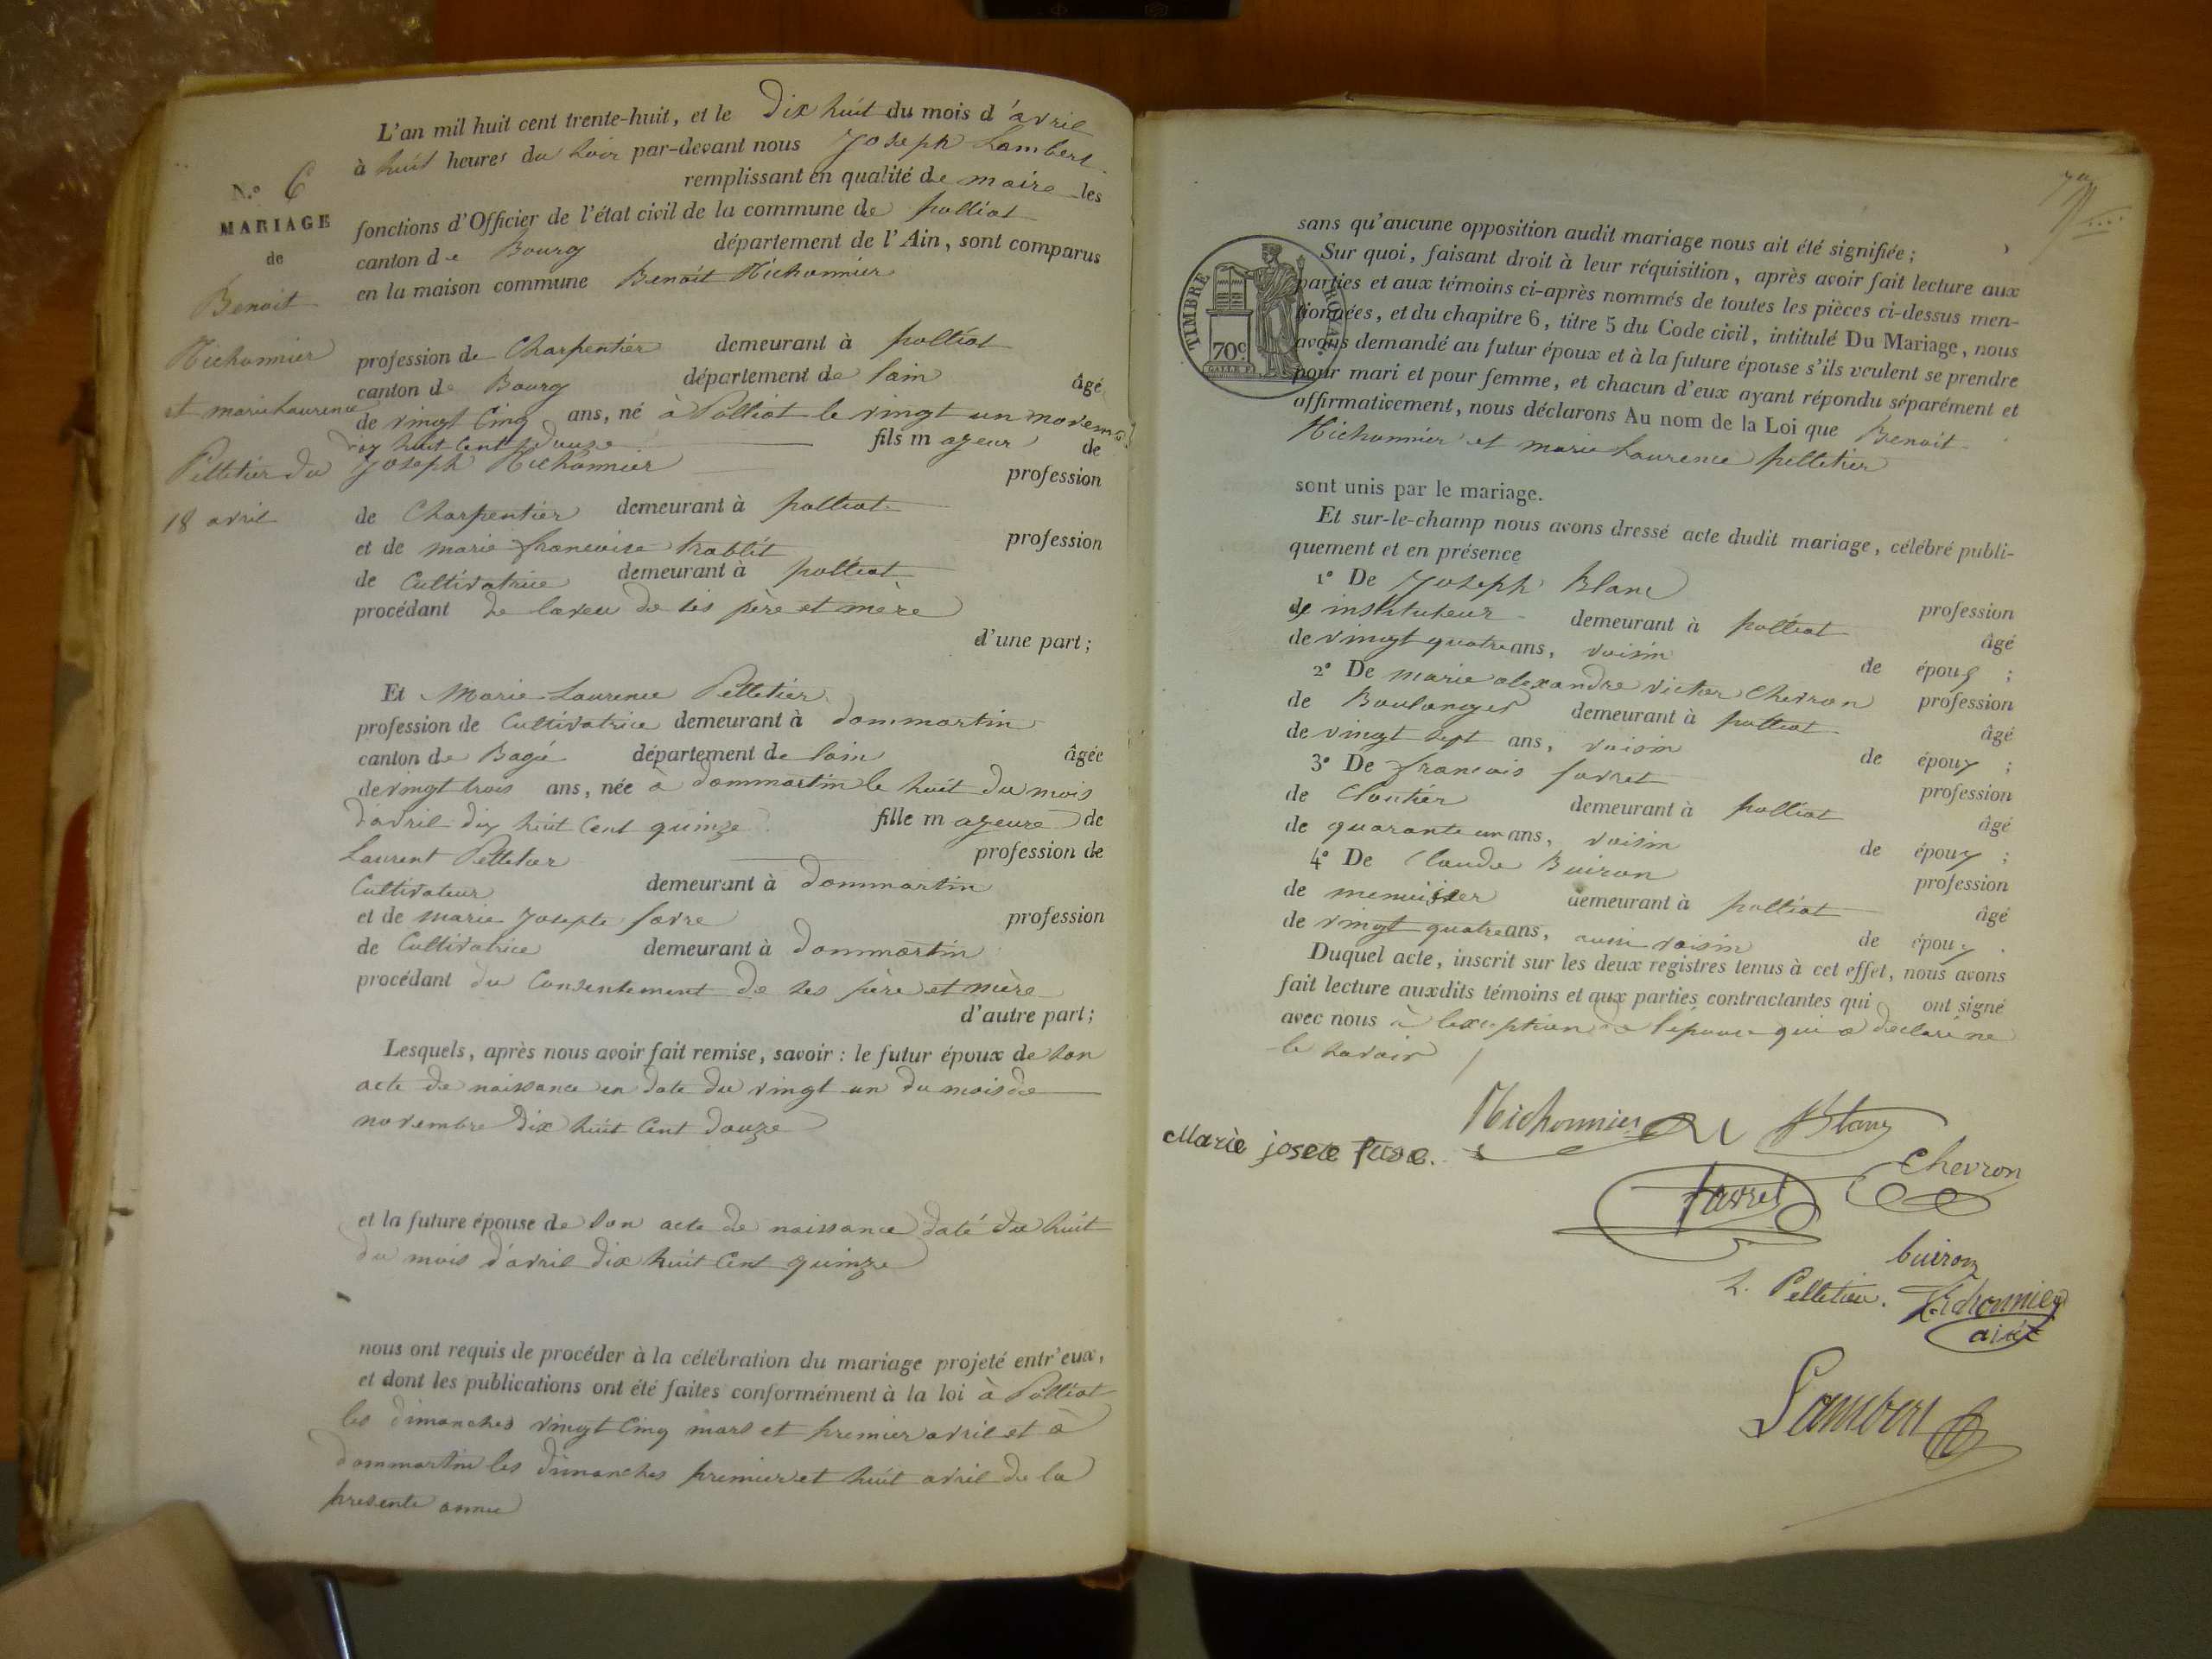 L'an mil huit cent trente-huit, et le Dix huit du mois d'avril
à huit heures du soir par-devant nous Joseph Lambert
remplissant en qualité de maire les
fonctions d'Officier de l'état civil de la commune de polliat
canton de Bourg département de l'Ain, sont comparus
en la maison commune Benoit Michonnier
profession de Charpentier demeurant à polliat
canton de Bourg département de lain âgé
de vingt Cinq ans, né à Polliat le vingt un novembre
dix huit Cent douze fils majeur de
Joseph Michonnier profession
de Charpentier demeurant à polliat
et de marie francoise trablit profession
de Cultivatrice demeurant à polliat
procédant de laveu de ses père et mère
d'une part;
Et Marie Laurence Pelletier
profession de Cultivatrice demeurant à dommartin
canton de Bagé département de lain âgée
de vingt trois ans, née à dommartin le huit du mois
davril dix huit Cent quinze fille mageure de
Laurent Pelletier profession de
Cultivateur demeurant à dommartin
et de marie Josephe favre profession
de Cultivatrice demeurant à dommartin
procédant du Consentement de ses père et mère
d'autre part;
Lesquels, après nous avoir fait remise, savoir: le futur époux de son
acte de naissance en date du vingt un du mois de
novembre dix huit Cent douze
et la future épouse de son acte de naissance daté du huit
du mois d'avril dix huit Cent quinze
nous ont requis de procéder à la célébration du mariage projeté entr'eux,
et dont les publications ont été faites conformément à la loi à Polliat
les dimanches vingt Cinq mars et premier avril et à
dommartin les dimanches premier et huit avril de la
presente annee
N.° 6
MARIAGE
de
Benoit
Michonnier
et marie Laurence
Pelletier du
18 avril
sans qu'aucune opposition audit mariage nous ait été signifiée;
Sur quoi, faisant droit à leur réquisition, après avoir fait lecture aux
parties et aux témoins ci-après nommés de toutes les pièces ci-dessus men-
tionnées, et du chapitre 6, titre 5 du Code civil, intitulé Du Mariage, nous
avons demandé au futur époux et à la future épouse s'ils veulent se prendre
pour mari et pour femme, et chacun d'eux ayant répondu séparément et
affirmativement, nous déclarons Au nom de la Loi que Benoit
Michonnier et marie Laurence pelletier
sont unis par le mariage.
Et sur-le-champ nous avons dressé acte dudit mariage, célébré publi-
quement et en présence
1° De Joseph Blanc profession
de instituteur demeurant à polliat âgé
de vingt quatre ans, voisin de époux;
2° De marie alexandre victor Chevron profession
de Boulanger demeurant à polliat âgé
de vingt sept ans, voisin de époux;
3° De francois favret profession
de Cloutier demeurant à polliat âgé
de quarante un ans, voisin de époux;
4° De Claude Buiron profession
de menuisier demeurant à polliat âgé
de vingt quatre ans, aussi voisin de époux.
Duquel acte, inscrit sur les deux registres tenus à cet effet, nous avons
fait lecture auxdits témoins et aux parties contractantes qui ont signé
avec nous à lexception de l'épouse qui a déclaré ne
le savoir
TIMBRE ROYAL
70c.
Michonnier Blanc
Marie josete
Chevron
favret
buiron
L. Pelletier. Michonnier
ainé
Lambert